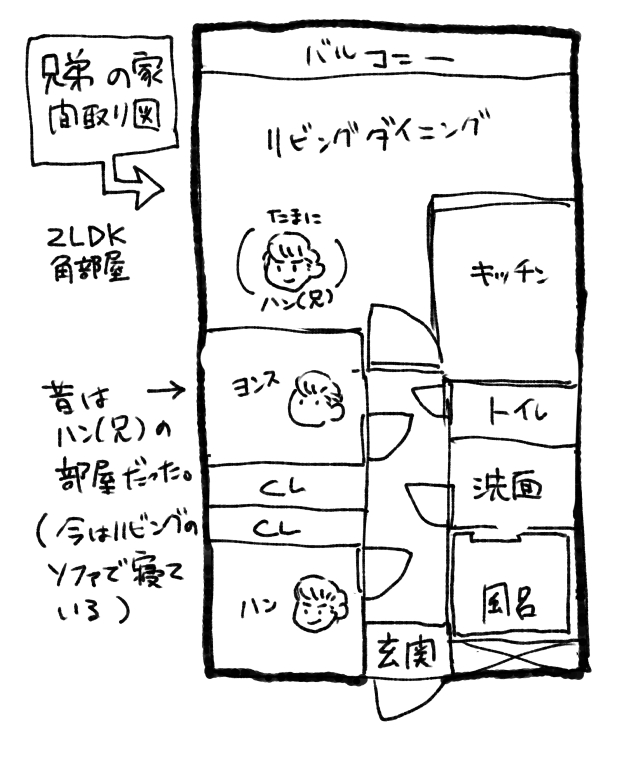 兄弟の家
間取り図
2LDK
角部屋
バルコニー
リビングダイニング
たまに
ハン(兄)
キッチン
昔は
ハン(兄)の
部屋だった。
(今はリビングの
ソファで寝て
いる)
ヨンス
トイレ
CL
洗面
CL
ハン
風呂
玄関